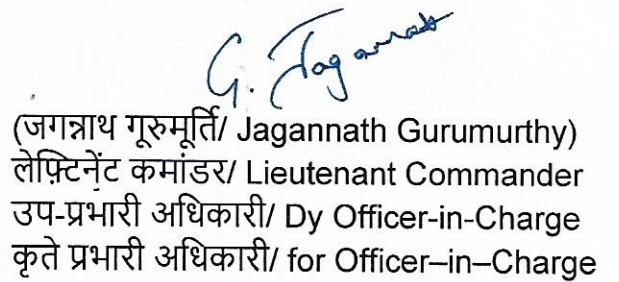 G. Jagannath
(जगन्नाथ गूरुमूर्ति/ Jagannath Gurumurthy)
लेफ़्टिनेंट कमांडर/ Lieutenant Commander
उप-प्रभारी अधिकारी/ Dy Officer-in-Charge
कृते प्रभारी अधिकारी/ for Officer–in–Charge